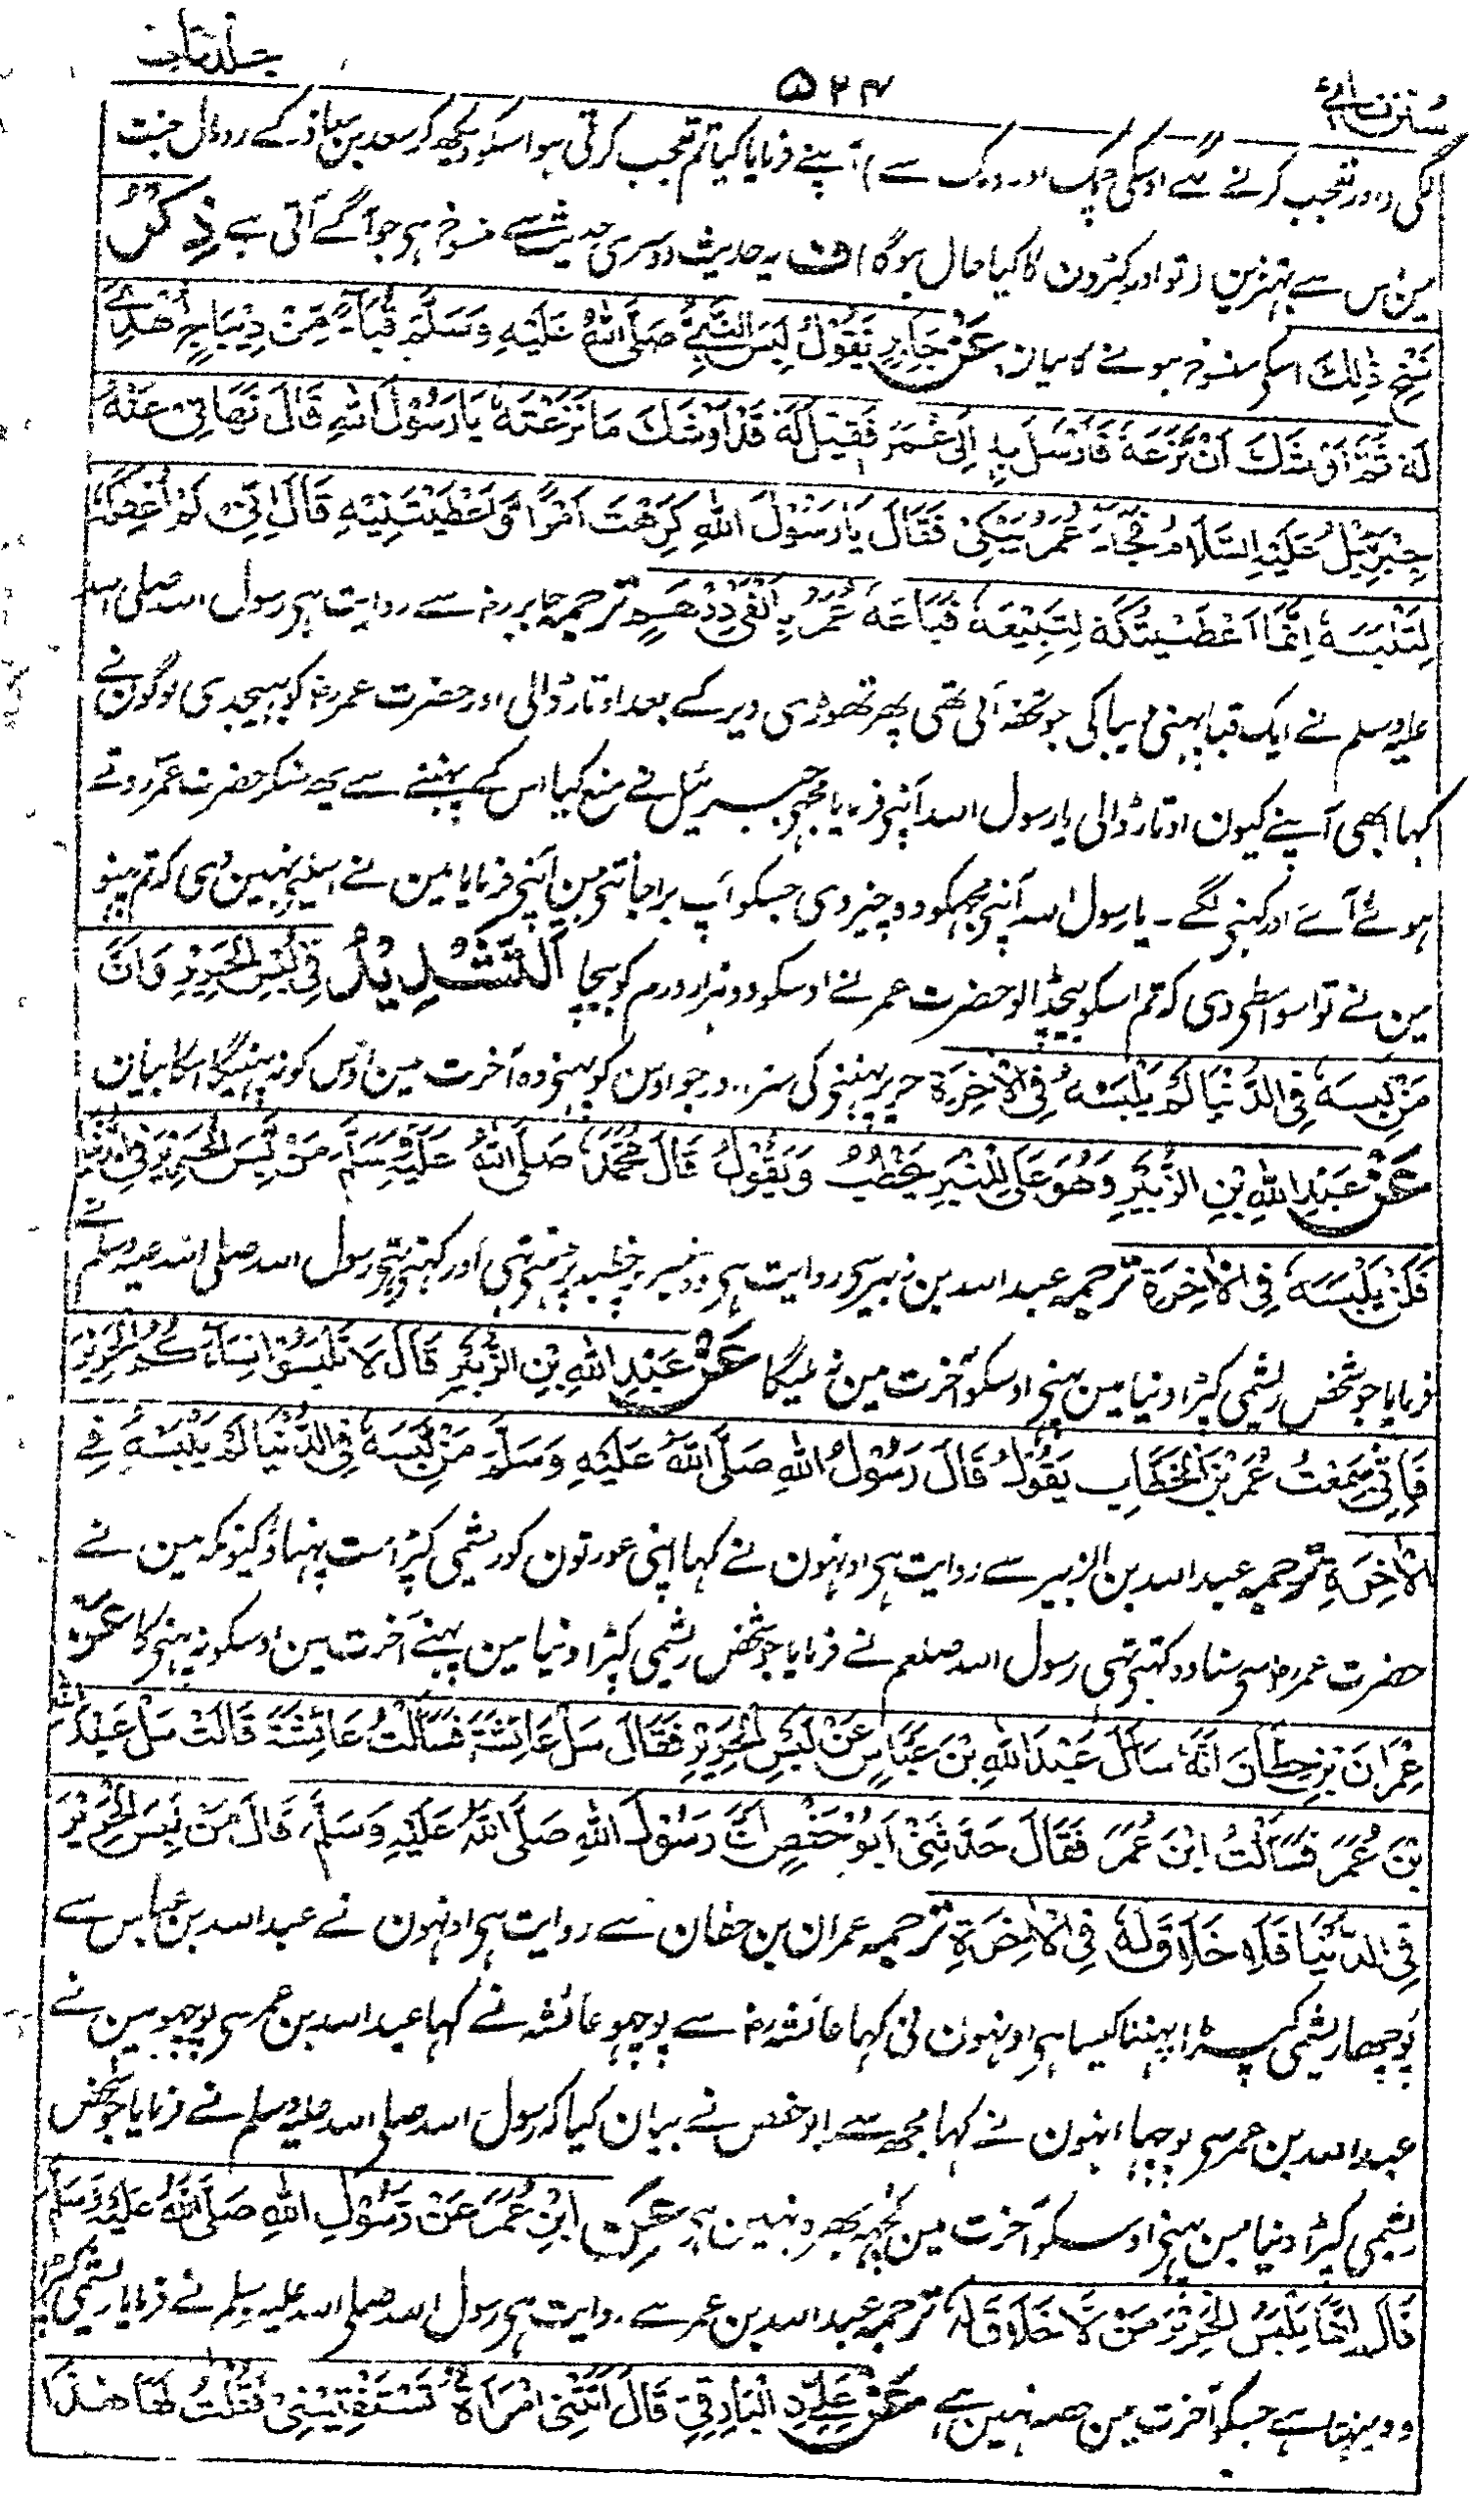 سنن نسائی ۵۲۴ جلد ثالث
لگی (اور تعجب کرنے لگے اوسکی چمک اور دمک سے) آپنے فرمایا کیا تم تعجب کرتی ہو اسکو دیکھ کر سعد بن معاذ کے رومال جنت
مین اس سے بہتر ہین (تو اور کپڑون کا کیا حال ہوگا) ف یہ حدیث دوسری حدیث سے منسوخ ہی جو آگے آتی ہے ذِكْرُ
نَسْخِ ذٰلِكَ اسکی منسوخ ہونے کا بیان عَنْ جَابِرٍ يَقُوْلُ لَبِسَ النَّبِيُّ صَلَّى اللّٰهُ عَلَيْهِ وَسَلَّمَ قَبَاءً مِّنْ دِيْبَاجٍ اُهْدِيَ
لَهٗ ثُمَّ اَوْشَكَ اَنْ نَزَعَهٗ فَاَرْسَلَ بِهٖ اِلٰى عُمَرَ فَقِيْلَ لَهٗ قَدْ اَوْشَكَ مَا نَزَعْتَهٗ يَا رَسُوْلَ اللّٰهِ قَالَ نَهَانِيْ عَنْهُ
جِبْرَئِيْلُ عَلَيْهِ السَّلَامُ فَجَاءَ عُمَرُ يَبْكِيْ فَقَالَ يَا رَسُوْلَ اللّٰهِ كَرِهْتَ اَمْرًا وَّاَعْطَيْتَنِيْهِ قَالَ اِنِّيْ لَمْ اُعْطِكَهٗ
لِتَلْبَسَهٗ اِنَّمَا اَعْطَيْتُكَهٗ لِتَبِيْعَهٗ فَبَاعَهٗ عُمَرُ بِاَلْفَيْ دِرْهَمٍ ترجمہ جابر رض سے روایت ہی رسول اللہ صلی اللہ
علیہ وسلم نے ایک قبا پہنی دیبا کی جو تحفہ آئی تھی پھر تھوڑی دیر کے بعد اوتار ڈالی اور حضرت عمر رض کو بھیجدی لوگون نے
کہا ابھی آپنے کیون اوتار ڈالی یا رسول اللہ آپنی فرمایا مجھی جبرئیل نے منع کیا اس کے پہننے سے یہ سنکر حضرت عمر روتے
ہوئے آے اور کہنی لگے۔ یا رسول اللہ آپنی مجھکو وہ چیز دی جسکو آپ برا جانتی ہین آپنی فرمایا مین نے اسلیی نہین دی کہ تم پہنو
مین نے تو اسواسطی دی کہ تم اسکو بیچ ڈالو حضرت عمر نے اوسکو دو ہزار درم کو بیچا اَلتَّشْدِيْدُ فِيْ لُبْسِ الْحَرِيْرِ وَاَنَّ
مَنْ لَبِسَهٗ فِى الدُّنْيَا لَمْ يَلْبَسْهُ فِى الْاٰخِرَةِ حریر پہننی کی سزا اور جو اوس کو پہنی وہ آخرت مین اوس کو نہ پہنیگا اسکا بیان
عَنْ عَبْدِ اللّٰهِ بْنِ الزُّبَيْرِ وَهُوَ عَلَى الْمِنْبَرِ يَخْطُبُ وَيَقُوْلُ قَالَ مُحَمَّدٌ صَلَّى اللّٰهُ عَلَيْهِ وَسَلَّمَ مَنْ لَبِسَ الْحَرِيْرَ فِى الدُّنْيَا
فَلَنْ يَلْبَسَهٗ فِى الْاٰخِرَةِ ترجمہ عبد اللہ بن زبیر سی روایت ہی وہ منبر پر خطبہ پڑہتی تہی اور کہتی تہی رسول اللہ صلی اللہ علیہ وسلم نے
فرمایا جو شخص ریشمی کپڑا دنیا مین پہنی اوسکو آخرت مین نہ ملیگا عَنْ عَبْدِ اللّٰهِ بْنِ الزُّبَيْرِ قَالَ لَا تُلْبِسُوْا نِسَاءَكُمُ الْحَرِيْرَ
فَاِنِّيْ سَمِعْتُ عُمَرَ بْنَ الْخَطَّابِ يَقُوْلُ قَالَ رَسُوْلُ اللّٰهِ صَلَّى اللّٰهُ عَلَيْهِ وَسَلَّمَ مَنْ لَبِسَهٗ فِى الدُّنْيَا لَمْ يَلْبَسْهُ فِى
الْاٰخِرَةِ ترجمہ عبد اللہ بن الزبیر سے روایت ہی اونہون نے کہا اپنی عورتون کو ریشمی کپڑا مت پہناؤ کیونکہ مین نے
حضرت عمر رض سی سنا وہ کہتی تہی رسول اللہ صلعم نے فرمایا جو شخص ریشمی کپڑا دنیا مین پہنے آخرت مین اوسکو نہ پہنی گا عَنْ
عِمْرَانَ بْنِ حِطَّانَ اَنَّهٗ سَاَلَ عَبْدَ اللّٰهِ بْنَ عَبَّاسٍ عَنْ لُبْسِ الْحَرِيْرِ فَقَالَ سَلْ عَائِشَةَ فَسَاَلْتُ عَائِشَةَ قَالَتْ سَلْ عَبْدَ اللّٰهِ
بْنَ عُمَرَ فَسَاَلْتُ ابْنَ عُمَرَ فَقَالَ حَدَّثَنِيْ اَبُوْ حَفْصٍ اَنَّ رَسُوْلَ اللّٰهِ صَلَّى اللّٰهُ عَلَيْهِ وَسَلَّمَ قَالَ مَنْ لَبِسَ الْحَرِيْرَ
فِى الدُّنْيَا فَلَا خَلَاقَ لَهٗ فِى الْاٰخِرَةِ ترجمہ عمران بن حطان سے روایت ہی اونہون نے عبد اللہ بن عباس سے
پوچھا ریشمی کپڑا پہننا کیسا ہی اونہون نی کہا عائشہ رض سے پوچھو عائشہ نے کہا عبد اللہ بن عمر سی پوچھو مین نے
عبد اللہ بن عمر سی پوچھا انہون نے کہا مجھ سے ابو حفص نے بیان کیا کہ رسول اللہ صلی اللہ علیہ وسلم نے فرمایا جو شخص
ریشمی کپڑا دنیا مین پہنی اوسکو آخرت مین کچھ بہرہ نہین ہی عَنْ ابْنِ عُمَرَ عَنْ رَسُوْلِ اللّٰهِ صَلَّى اللّٰهُ عَلَيْهِ وَسَلَّمَ
قَالَ اِنَّمَا يَلْبَسُ الْحَرِيْرَ مَنْ لَّا خَلَاقَ لَهٗ ترجمہ عبد اللہ بن عمر سے روایت ہی رسول اللہ صلی اللہ علیہ وسلم نے فرمایا ریشمی کپڑا
وہ پہنتا ہے جسکو آخرت مین حصہ نہین ہے عَنْ عَلِيٍّ الْبَارِقِيِّ قَالَ اَتَتْنِى امْرَاَةٌ تَسْتَفْتِيْنِيْ فَقُلْتُ لَهَا هٰذَا